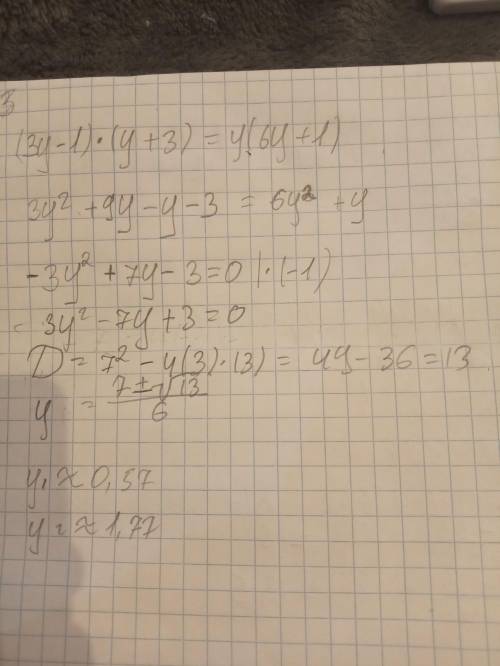 3
(3y-1)·(y+3)=y(6y+1)
3y²+9y-y-3=6y²+y
-3y²+7y-3=0 |·(-1)
3y²-7y+3=0
D=7²-4(3)·13)=49-36=13
y=(7±√13)/6
y₁≈0,57
y₂≈1,77